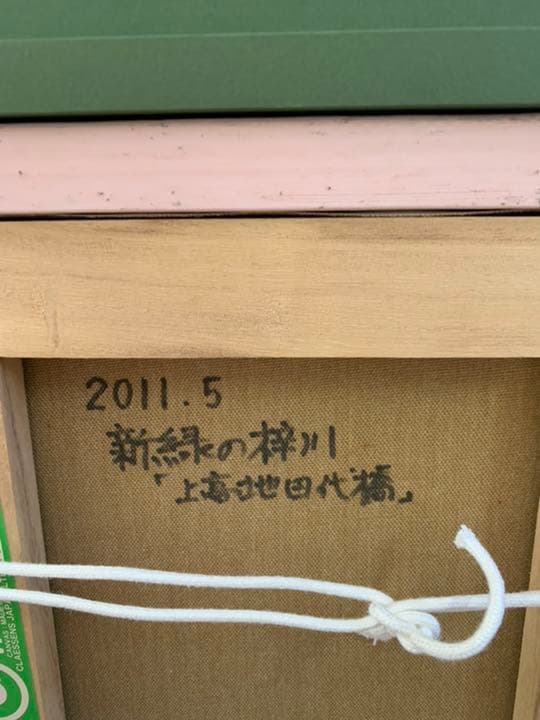 2011.5
新緑の梓川
「上高地田代橋」
CANVAS MADE
CLAESSENS JAPA